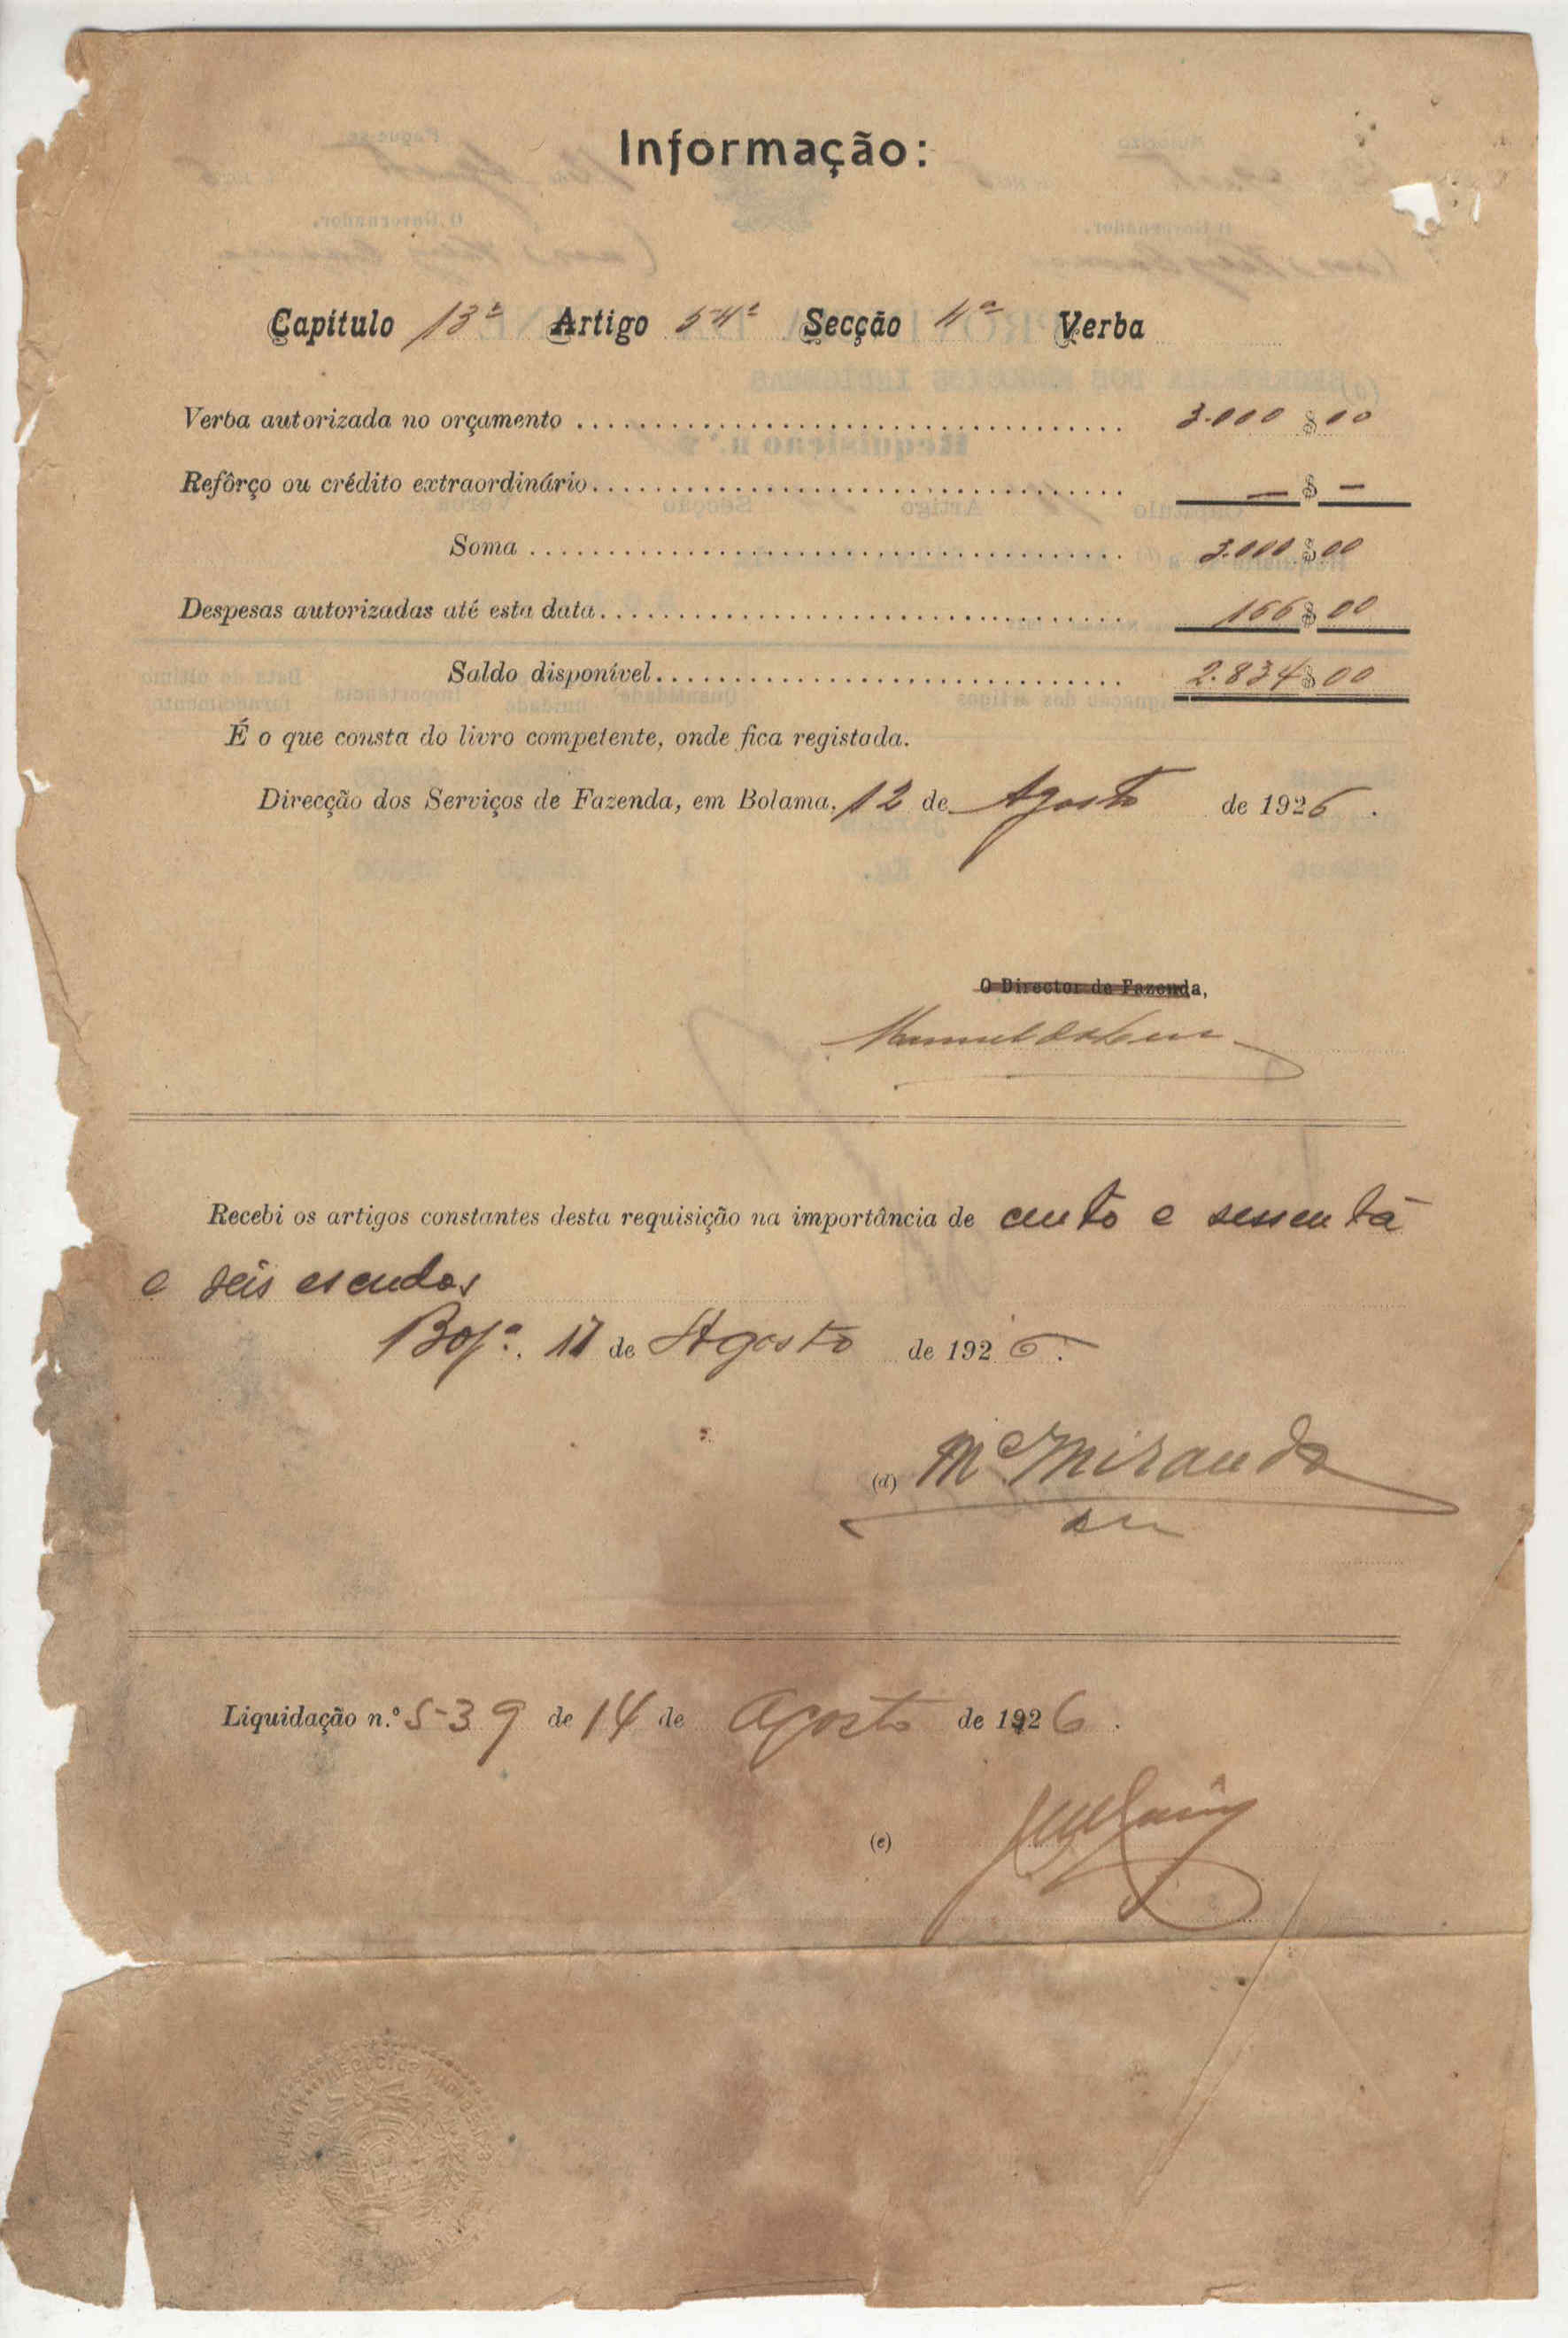 Informação:
Capítulo 13º Artigo 54º Secção 4ª Verba
Verba autorizada no orçamento 3.000$00
Refôrço ou crédito extraordinário —$—
Soma 3.000$00
Despesas autorizadas até esta data 166$00
Saldo disponível 2.834$00
É o que consta do livro competente, onde fica registada.
Direcção dos Serviços de Fazenda, em Bolama, 12 de Agosto de 1926.
O Director de Fazenda,
Recebi os artigos constantes desta requisição na importância de cento e sessenta
e seis escudos
17 de Agosto de 1926.
(d) Miranda
Liquidação n.º 539 de 14 de Agosto de 1926.
(e)